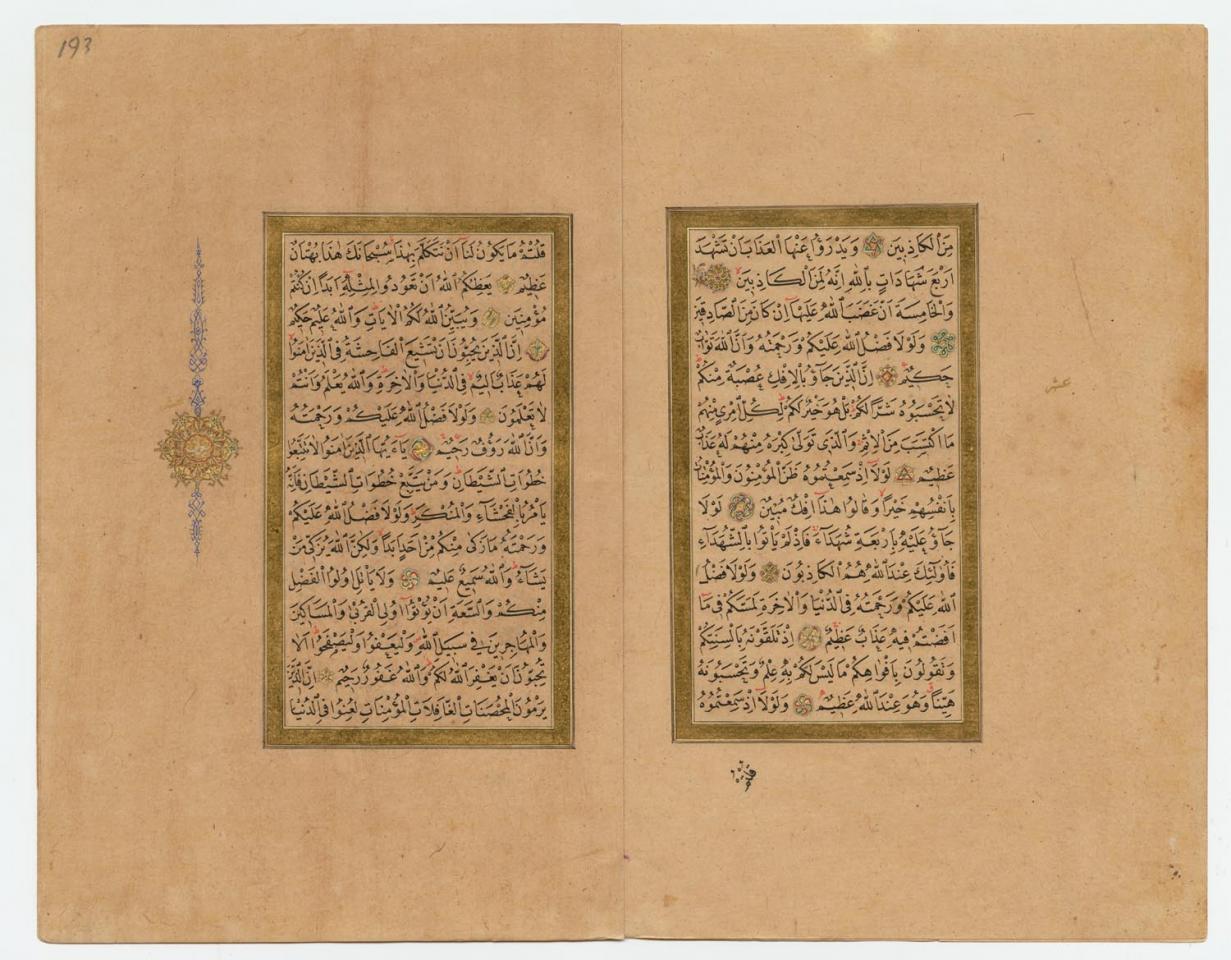 مِنَ الْكَاذِبِينَ وَيَدْرَؤُا عَنْهَا الْعَذَابَ اَنْ تَشْهَدَ
اَرْبَعَ شَهَادَاتٍ بِاللّٰهِ اِنَّهُ لَمِنَ الْكَاذِبِينَ
وَالْخَامِسَةَ اَنَّ غَضَبَ اللّٰهِ عَلَيْهَا اِنْ كَانَ مِنَ الصَّادِقِينَ
وَلَوْلَا فَضْلُ اللّٰهِ عَلَيْكُمْ وَرَحْمَتُهُ وَاَنَّ اللّٰهَ تَوَّابٌ
حَكِيمٌ اِنَّ الَّذِينَ جَاؤُ بِالْاِفْكِ عُصْبَةٌ مِنْكُمْ
لَا تَحْسَبُوهُ شَرًّا لَكُمْ بَلْ هُوَ خَيْرٌ لَكُمْ لِكُلِّ امْرِئٍ مِنْهُمْ
مَا اكْتَسَبَ مِنَ الْاِثْمِ وَالَّذِى تَوَلّٰى كِبْرَهُ مِنْهُمْ لَهُ عَذَابٌ
عَظِيمٌ لَوْلَا اِذْ سَمِعْتُمُوهُ ظَنَّ الْمُؤْمِنُونَ وَالْمُؤْمِنَاتُ
بِاَنْفُسِهِمْ خَيْرًا وَقَالُوا هٰذَا اِفْكٌ مُبِينٌ لَوْلَا
جَاؤُ عَلَيْهِ بِاَرْبَعَةِ شُهَدَاءَ فَاِذْ لَمْ يَأْتُوا بِالشُّهَدَاءِ
فَاُولٰئِكَ عِنْدَ اللّٰهِ هُمُ الْكَاذِبُونَ وَلَوْلَا فَضْلُ
اللّٰهِ عَلَيْكُمْ وَرَحْمَتُهُ فِى الدُّنْيَا وَالْاٰخِرَةِ لَمَسَّكُمْ فِى مَا
اَفَضْتُمْ فِيهِ عَذَابٌ عَظِيمٌ اِذْ تَلَقَّوْنَهُ بِاَلْسِنَتِكُمْ
وَتَقُولُونَ بِاَفْوَاهِكُمْ مَا لَيْسَ لَكُمْ بِهِ عِلْمٌ وَتَحْسَبُونَهُ
هَيِّنًا وَهُوَ عِنْدَ اللّٰهِ عَظِيمٌ وَلَوْلَا اِذْ سَمِعْتُمُوهُ
قلتم
عشر
193
قُلْتُمْ مَا يَكُونُ لَنَا اَنْ نَتَكَلَّمَ بِهٰذَا سُبْحَانَكَ هٰذَا بُهْتَانٌ
عَظِيمٌ يَعِظُكُمُ اللّٰهُ اَنْ تَعُودُوا لِمِثْلِهِ اَبَدًا اِنْ كُنْتُمْ
مُؤْمِنِينَ وَيُبَيِّنُ اللّٰهُ لَكُمُ الْاٰيَاتِ وَاللّٰهُ عَلِيمٌ حَكِيمٌ
اِنَّ الَّذِينَ يُحِبُّونَ اَنْ تَشِيعَ الْفَاحِشَةُ فِى الَّذِينَ اٰمَنُوا
لَهُمْ عَذَابٌ اَلِيمٌ فِى الدُّنْيَا وَالْاٰخِرَةِ وَاللّٰهُ يَعْلَمُ وَاَنْتُمْ
لَا تَعْلَمُونَ وَلَوْلَا فَضْلُ اللّٰهِ عَلَيْكُمْ وَرَحْمَتُهُ
وَاَنَّ اللّٰهَ رَؤُفٌ رَحِيمٌ يَاءَيُّهَا الَّذِينَ اٰمَنُوا لَا تَتَّبِعُوا
خُطُوَاتِ الشَّيْطَانِ وَمَنْ يَتَّبِعْ خُطُوَاتِ الشَّيْطَانِ فَاِنَّهُ
يَأْمُرُ بِالْفَحْشَاءِ وَالْمُنْكَرِ وَلَوْلَا فَضْلُ اللّٰهِ عَلَيْكُمْ
وَرَحْمَتُهُ مَا زَكٰى مِنْكُمْ مِنْ اَحَدٍ اَبَدًا وَلٰكِنَّ اللّٰهَ يُزَكِّى مَنْ
يَشَاءُ وَاللّٰهُ سَمِيعٌ عَلِيمٌ وَلَا يَأْتَلِ اُولُوا الْفَضْلِ
مِنْكُمْ وَالسَّعَةِ اَنْ يُؤْتُوا اُولِى الْقُرْبٰى وَالْمَسَاكِينَ
وَالْمُهَاجِرِينَ فِى سَبِيلِ اللّٰهِ وَلْيَعْفُوا وَلْيَصْفَحُوا اَلَا
تُحِبُّونَ اَنْ يَغْفِرَ اللّٰهُ لَكُمْ وَاللّٰهُ غَفُورٌ رَحِيمٌ اِنَّ الَّذِينَ
يَرْمُونَ الْمُحْصَنَاتِ الْغَافِلَاتِ الْمُؤْمِنَاتِ لُعِنُوا فِى الدُّنْيَا